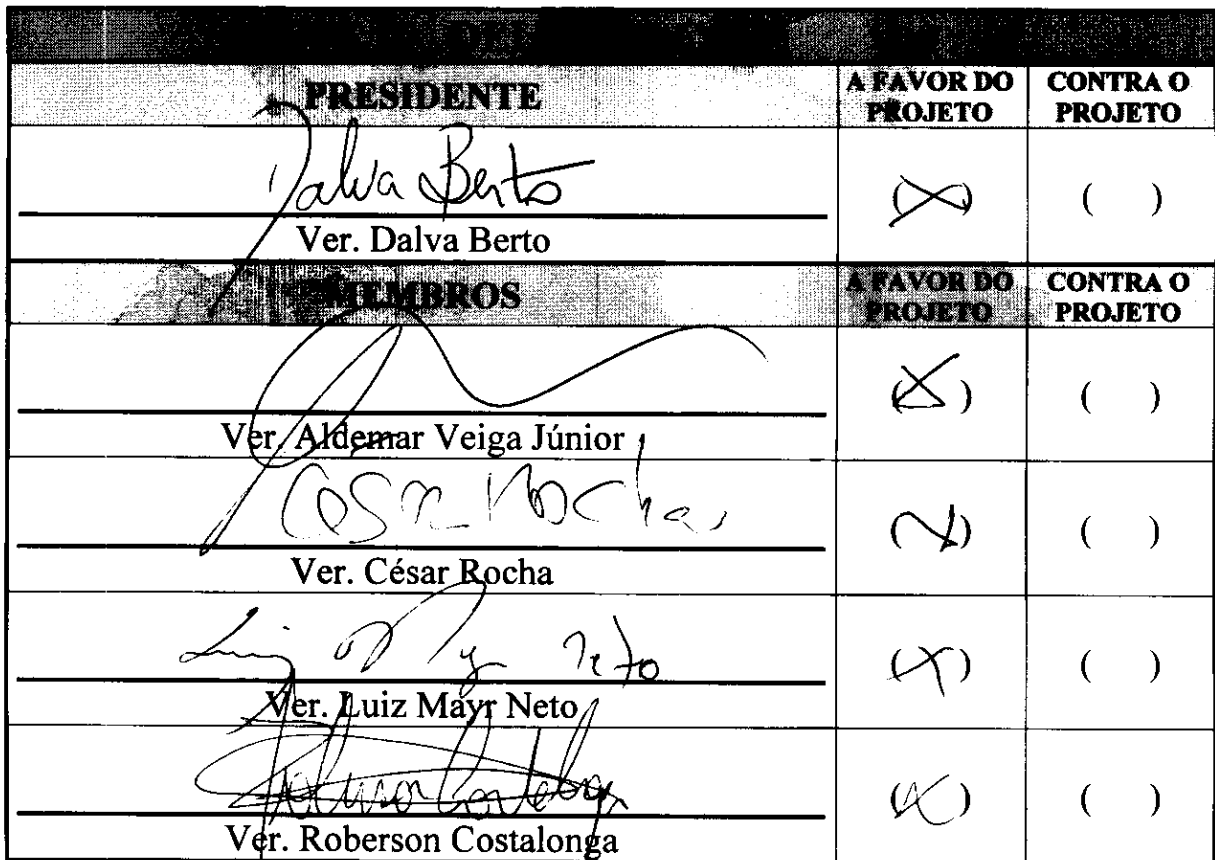 PRESIDENTE
A FAVOR DO PROJETO
CONTRA O PROJETO
Dalva Berto
(X)
( )
Ver. Dalva Berto
MEMBROS
A FAVOR DO PROJETO
CONTRA O PROJETO
(X)
( )
Ver. Aldemar Veiga Júnior
César Rocha
(X)
( )
Ver. César Rocha
Luiz Mayr Neto
(X)
( )
Ver. Luiz Mayr Neto
(X)
( )
Ver. Roberson Costalonga